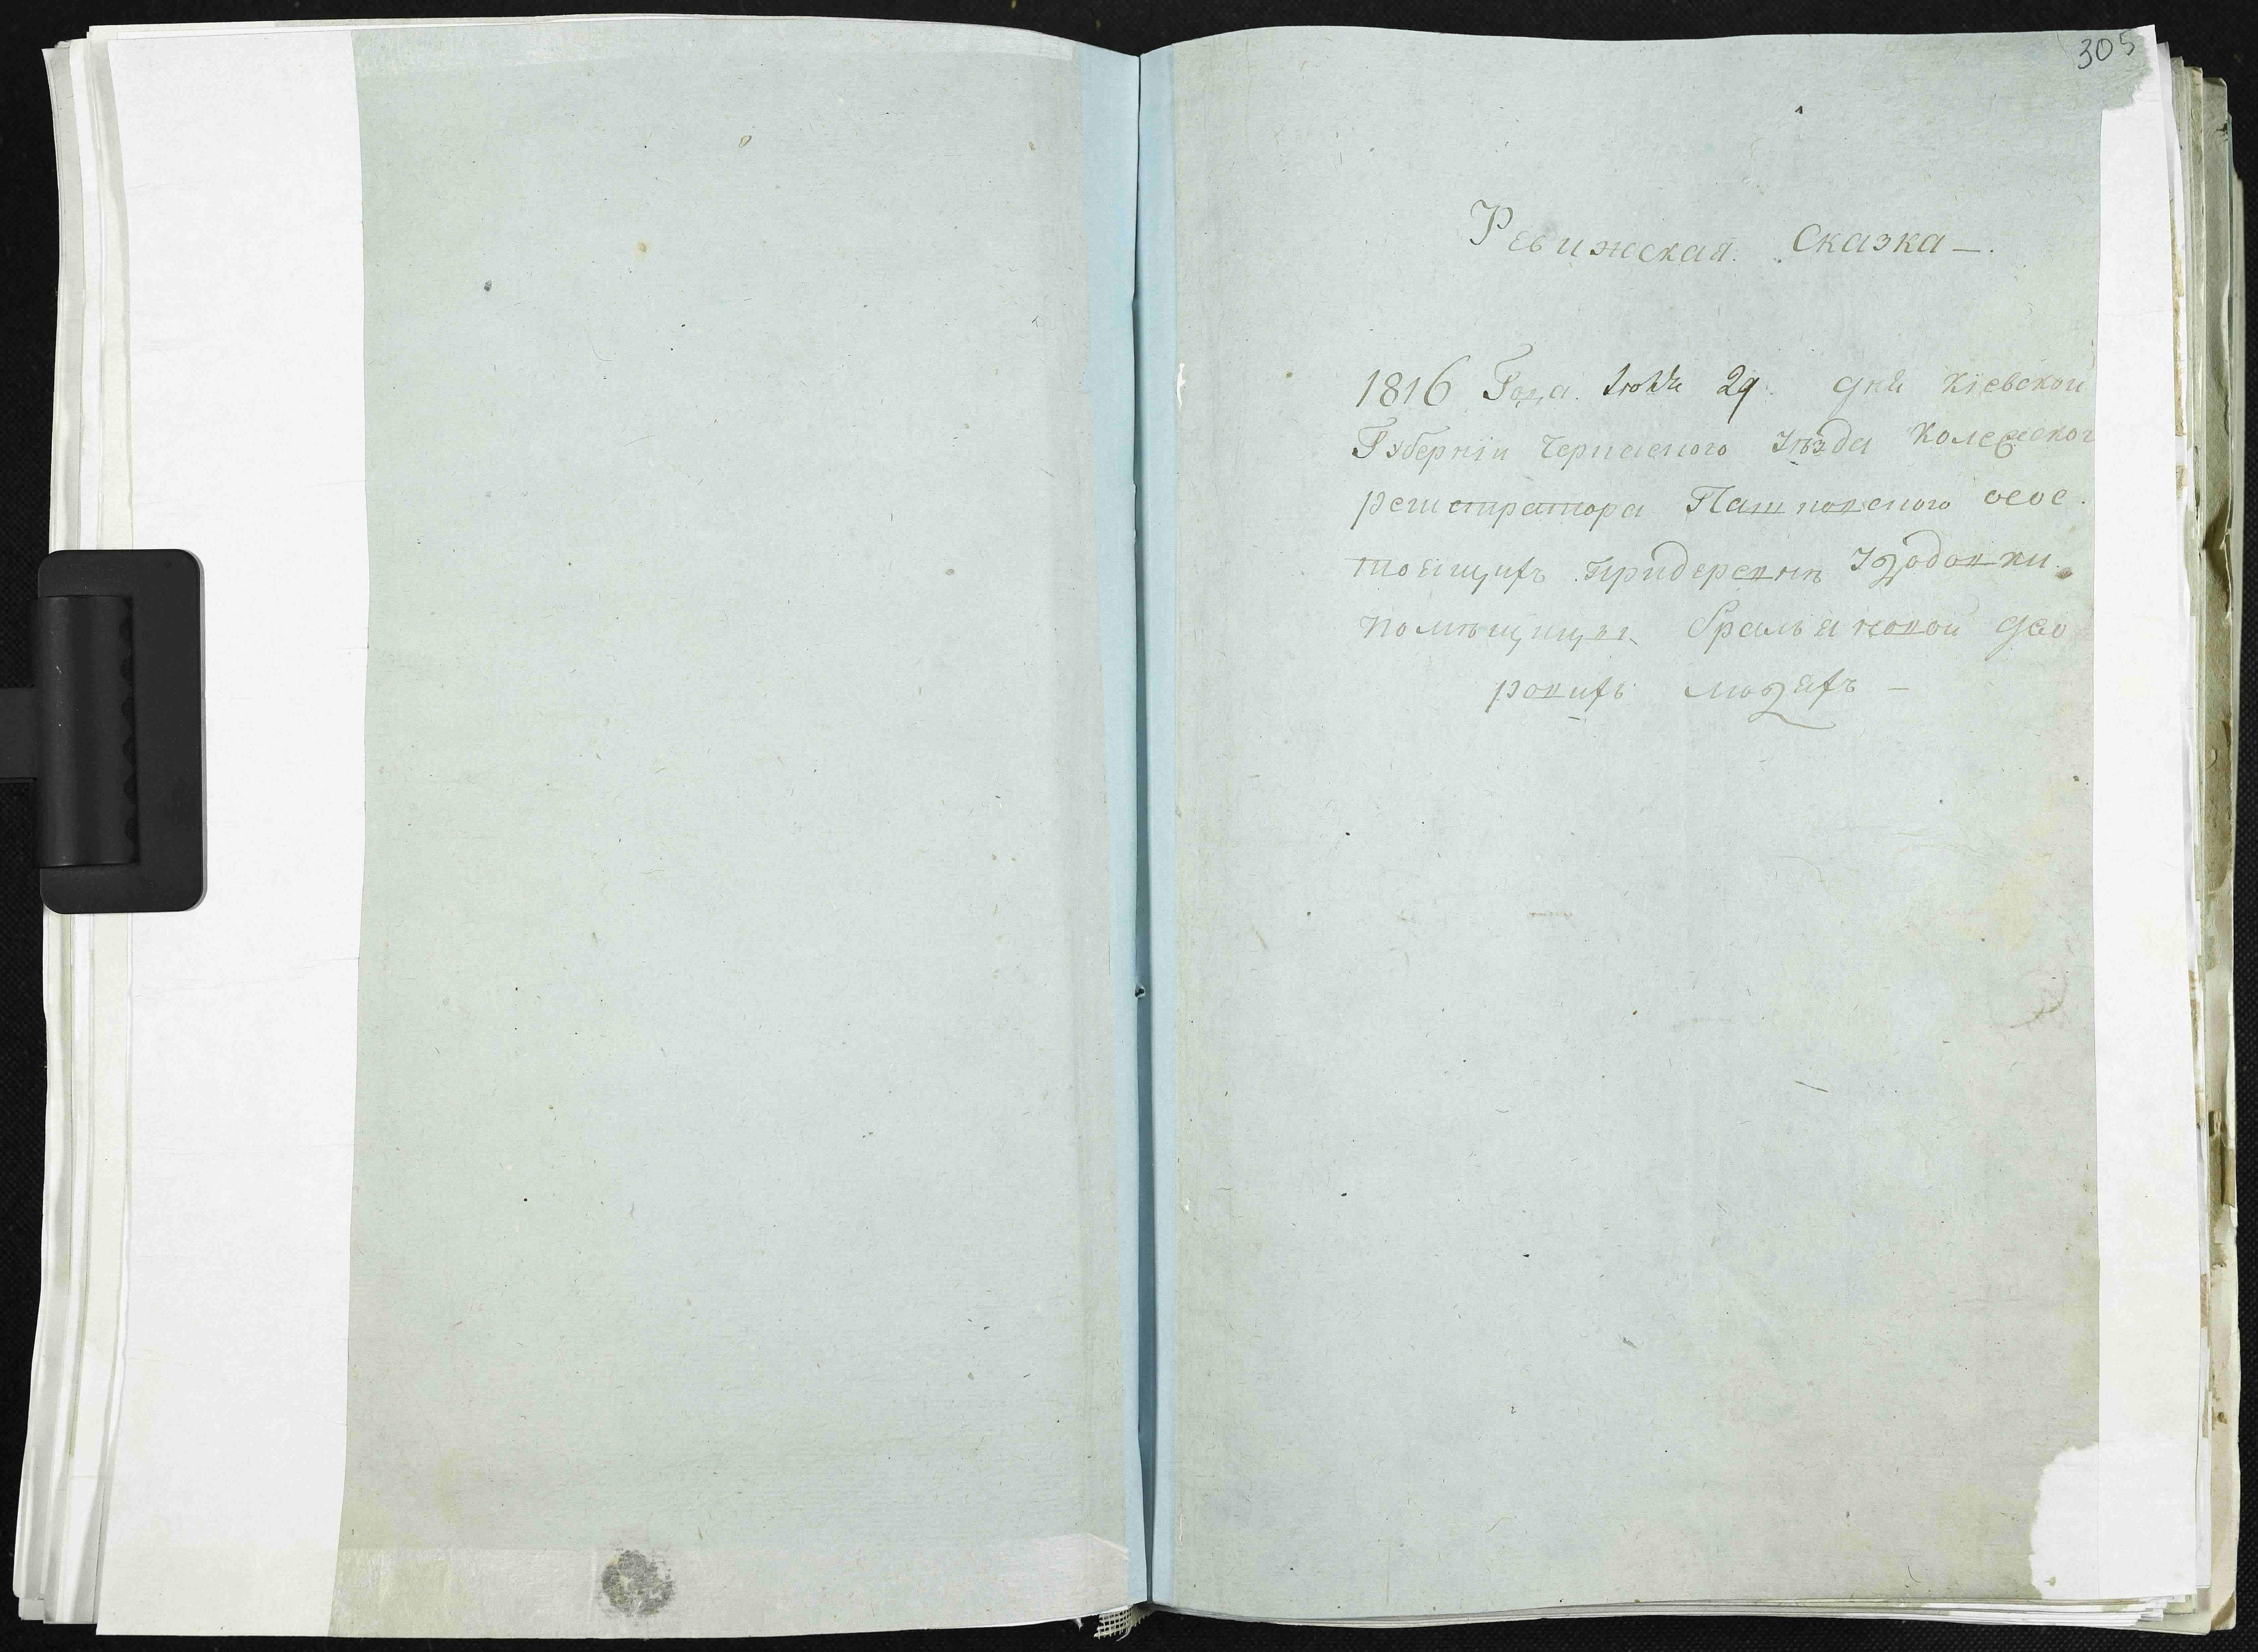 305
Ревижская Сказка —.
1816 Года Июня 29 дня Кіевской
Губерніи Черкаского Уѣзда Колежског
регистратора Пашковского осос
тоящихъ придеревнѣ Худовки
помѣщицы Гральевской дво
ровихъ людяхъ —